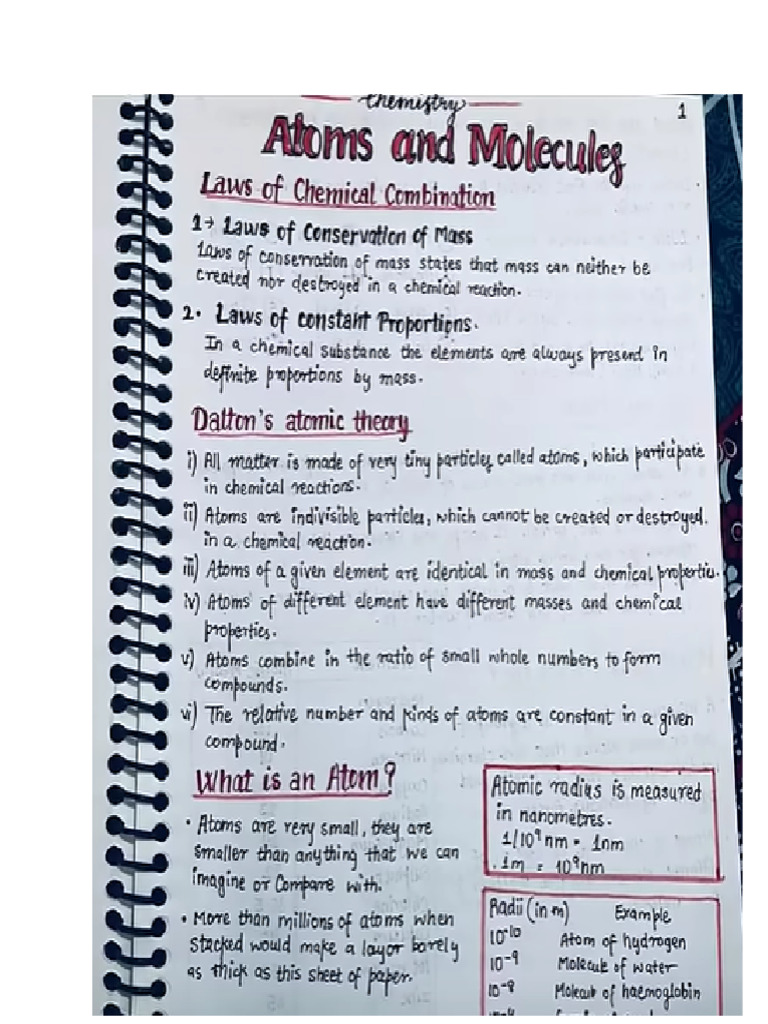 Chemistry
1
Atoms and Molecules
Laws of Chemical Combination
1→ Laws of Conservation of Mass
Laws of conservation of mass states that mass can neither be
created nor destroyed in a chemical reaction.
2. Laws of constant Proportions.
In a chemical substance the elements are always present in
definite proportions by mass.
Dalton's atomic theory
i) All matter is made of very tiny particles called atoms, which participate
in chemical reactions.
ii) Atoms are indivisible particles, which cannot be created or destroyed.
in a chemical reaction.
iii) Atoms of a given element are identical in mass and chemical properties.
iv) Atoms of different element have different masses and chemical
properties.
v) Atoms combine in the ratio of small whole numbers to form
compounds.
vi) The relative number and kinds of atoms are constant in a given
compound.
What is an Atom?
• Atoms are very small, they are
smaller than anything that we can
imagine or Compare with.
• More than millions of atoms when
stacked would make a layor barely
as thick as this sheet of paper.
Atomic radius is measured
in nanometres.
1/10⁹ nm = 1nm
1m = 10⁹nm
Radii (in m) Example
10⁻¹⁰ Atom of hydrogen
10⁻⁹ Molecule of water
10⁻⁸ Molecule of haemoglobin